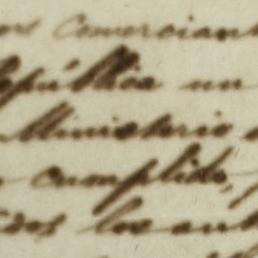 comercian
República un
Ministerio
cumplido,
los